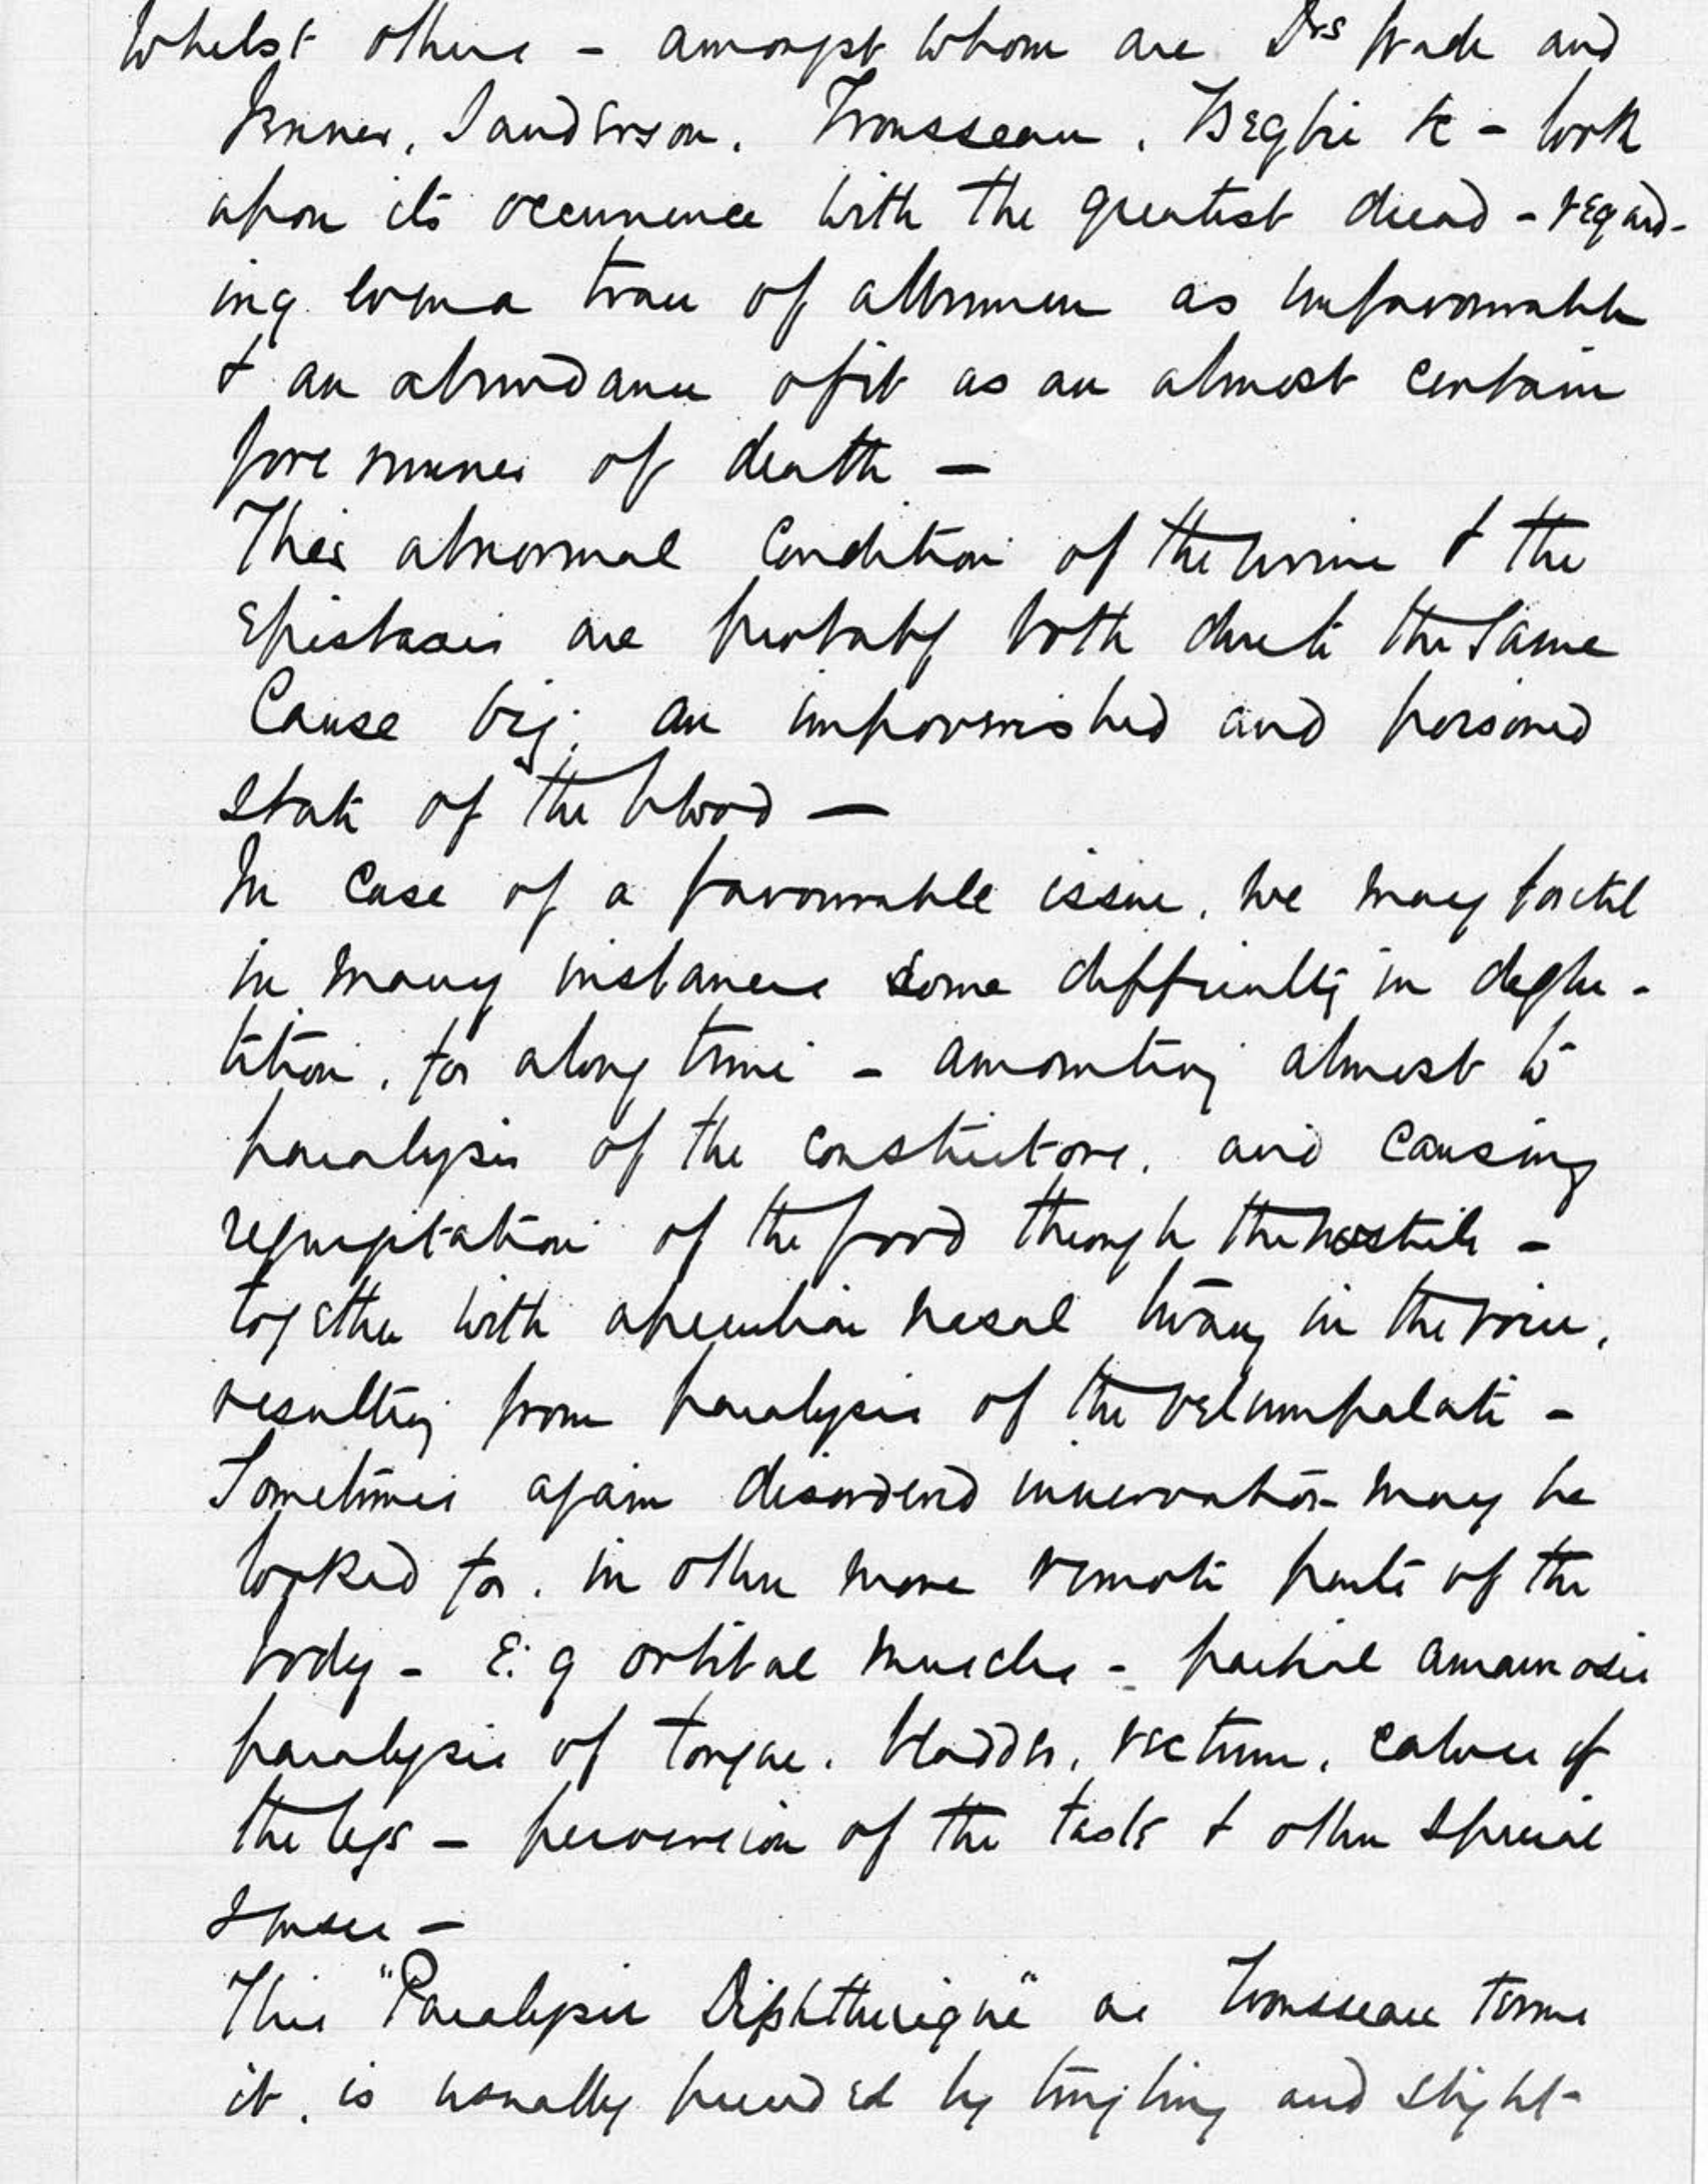 Whilst others - amongst whom are Drs Wade and
Jenner, Sanderson, Trousseau, Begbie &c - look
upon its occurrence with the greatest dread - regard-
ing even a trace of albumen as unfavourable
& an abundance of it as an almost certain
fore runner of death —
This abnormal Condition of the urine & the
Epistaxis are probably both due to the Same
Cause viz; an impoverished and poisoned
State of the blood —
In Case of a favourable issue, we may foretel
in many instances some difficulty in deglu-
tition, for a long time - amounting almost to
paralysis of the constrictors, and Causing
regurgitation of the food through the nostrils -
together with a peculiar nasal twang in the voice,
resulting from paralysis of the velum palati -
Sometimes again disordered innervation may be
looked for, in other more remote parts of the
body - E.g orbital muscles - partial amaurosis
paralysis of tongue, bladder, rectum, calves of
the legs - perversion of the taste & other Special
Senses -
This "Paralysis Diphtherique" as Trousseau terms
it, is usually preceded by tingling and slight-